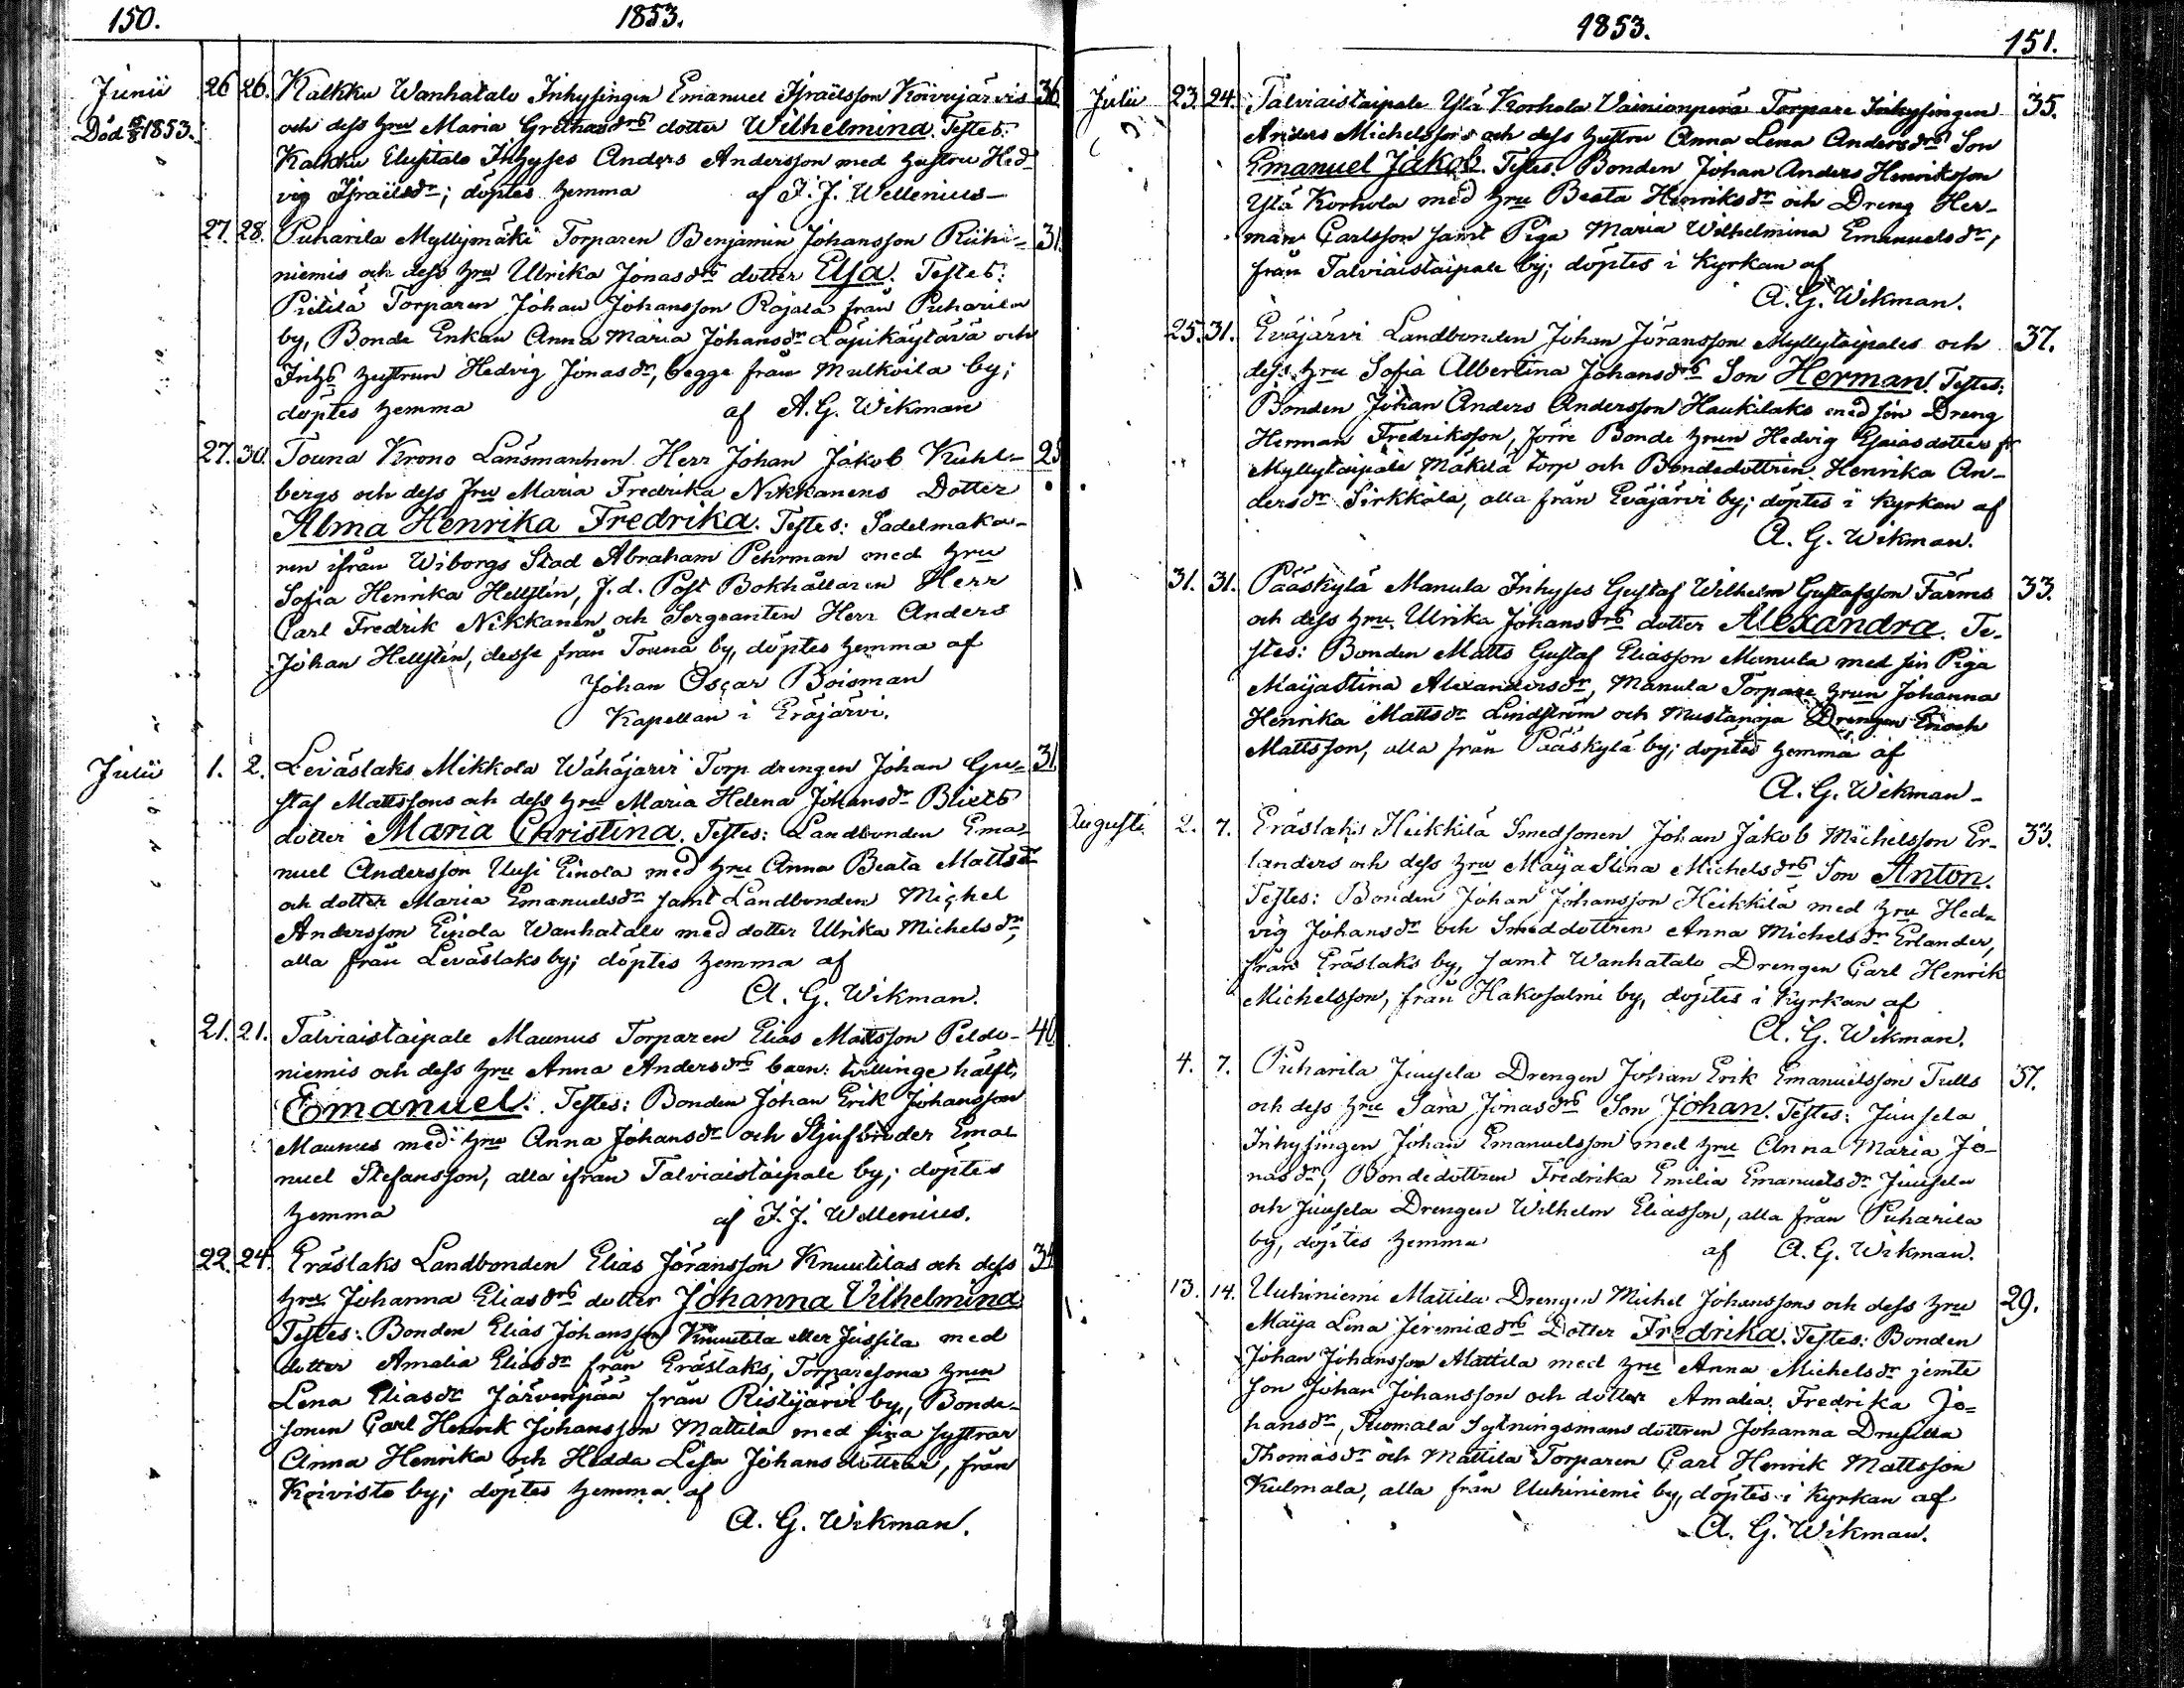 150. 1853.
Junii 26 26. Kalkku Wanhatalo Inhysingen Emanuel Israëlsson Koivujärvis 36
Död 1853. och dess hru Maria Grethas drs dotter Wilhelmina. Testes:
Kalkku Uusitalo Inhyses Anders Andersson med hustru Hed-
vig Israëlsdr; döptes hemma af F. J. Wellenius
27. 28. Puharila Myllymäki Torparen Benjamin Johansson Riihi- 31
niemis och dess hru Ulrika Jonasdrs dotter Elsa. Testes:
Pietilä Torparen Johan Johansson Rajala från Puharila
by, Bonde Enkan Anna Maria Johansdr Läpikäytävä och
Inhs hustrun Hedvig Jonasdr, begge från Mulkoila by;
döptes hemma af A. G. Wikman
27. 30. Touna Krono Länsmannen Herr Johan Jakob Kuhl-
bergs och dess fru Maria Fredrika Nikkanens Dotter
Alma Henrika Fredrika. Testes: Sadelmaka-
ren ifrån Wiborgs Stad Abraham Pehrman med hru
Sofia Henrika Hellstén, J. d. Post Bokhållaren Herr
Carl Fredrik Nikkanen och Sergeanten Herr Anders
Johan Hellstén, desse från Touna by, döptes hemma af
Johan Oscar Boisman
Kapellan i Eräjärvi.
Julii 1. 2. Leväslaks Mikkola Wähäjärvi Torp drengen Johan Gu- 31
staf Mattssons och dess hru Maria Helena Johansdr Blixts
dotter Maria Christina. Testes: Landbonden Ema-
nuel Andersson Uusi Einola med hru Anna Beata Mattsdr
och dotter Maria Emanuelsdr samt Landbonden Michel
Andersson Einola Wanhatalo med dotter Ulrika Michelsdr,
alla från Leväslaks by; döptes hemma af
A. G. Wikman.
21. 21. Talviaistaipale Maunus Torparen Elias Mattsson Peldo- 40
niemis och dess hru Anna Andersdrs barn: tvillinge hälft,
Emanuel. Testes: Bonden Johan Erik Johansson
Maunus med hru Anna Johansdr och Stjufbroder Ema-
nuel Stefansson, alla ifrån Talviaistaipale by; döptes
hemma af F. J. Wellenius.
22. 24. Eräslaks Landbonden Elias Jöransson Knuutilas och dess 34
hru Johanna Eliasdrs dotter Johanna Vilhelmina
Testes: Bonden Elias Johansson Knuutila eller Jussila med
dotter Amalia Eliasdr från Eräslaks, Torparesona hrun
Lena Eliasdr Järvenpää från Ristijärvi by, Bonde-
sonen Carl Henrik Johansson Mattila med sina systrar
Anna Henrika och Hedda Lisa Johans döttrar, från
Koivisto by; döptes hemma af
A. G. Wikman.
1853. 151.
Julii 23. 24. Talviaistaipale Ylä Korhola Vainionperä Torpare Inhysingen 35.
Anders Michelssons och dess hustru Anna Lena Andersdrs Son
Emanuel Jakob. Testes: Bonden Johan Anders Henriksson
Ylä Korhola med hru Beata Henriksdr och Dreng Her-
man Carlsson samt Piga Maria Wilhelmina Emanuelsdr,
från Talviaistaipale by; döptes i Kyrkan af
A. G. Wikman.
25. 31. Eväjärvi Landbonden Johan Jöransson Myllytaipales och 37.
dess hru Sofia Albertina Johansdrs Son Herman. Testes:
Bonden Johan Anders Andersson Haukilaks med sin Dreng
Herman Fredriksson, förre Bonde hrun Hedvig Esaiasdotter fr
Myllytaipale Mäkelä torp och Bondedottren Henrika An-
dersdr Sirkkala, alla från Eväjärvi by; döptes i kyrkan af
A. G. Wikman.
31. 31. Pääskylä Manula Inhyses Gustaf Wilhelm Gustafsson Farms 33.
och dess hru Ulrika Johansdrs dotter Alexandra. Te-
stes: Bonden Matts Gustaf Eliasson Manula med sin Piga
Maija Stina Alexandersdr, Manula Torpare hrun Johanna
Henrika Mattsdr Lindström och Mustanoja Drengen Enoch
Mattsson, alla från Pääskylä by; döptes hemma af
A. G. Wikman
Augusti 2. 7. Eräslaks Heikkilä Smedsonen Johan Jakob Michelsson Er- 33.
landers och dess hru Maija Stina Michelsdrs Son Anton.
Testes: Bonden Johan Johansson Heikkilä med hru Hed-
vig Johansdr och Smeddottren Anna Michelsdr Erlander,
från Eräslaks by, samt Wanhatalo Drengen Carl Henrik
Michelsson, från Hakosalmi by, döptes i Kyrkan af
A. G. Wikman.
4. 7. Puharila Juusela Drengen Johan Erik Emanuelsson Tulls 37.
och dess hru Sara Jonasdrs Son Johan. Testes: Juusela
Inhysingen Johan Emanuelsson med hru Anna Maria Jo-
nasdr, Bondedottren Fredrika Emilia Emanuelsdr Juusela
och Juusela Drengen Wilhelm Eliasson, alla från Puharila
by, döptes hemma af A. G. Wikman.
13. 14. Uuhiniemi Mattila Drengen Michel Johanssons och dess hru 29.
Maija Lena Jeremiædrs Dotter Fredrika. Testes: Bonden
Johan Johansson Mattila med hru Anna Michelsdr jemte
son Johan Johansson och dotter Amalia Fredrika Jo-
hansdr, Tuomala Sytningsmans dottren Johanna Drusilla
Thomasdr och Mattila Torparen Carl Henrik Mattsson
Kulmala, alla från Uuhiniemi by, döptes i Kyrkan af
A. G. Wikman.